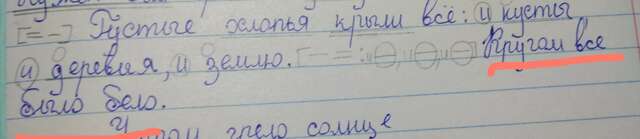 [= –] Густые хлопья крыли всё: и кусты
и деревья, и землю. [– =: и O, и O, и O] Кругом все
было бело.
грело солнце